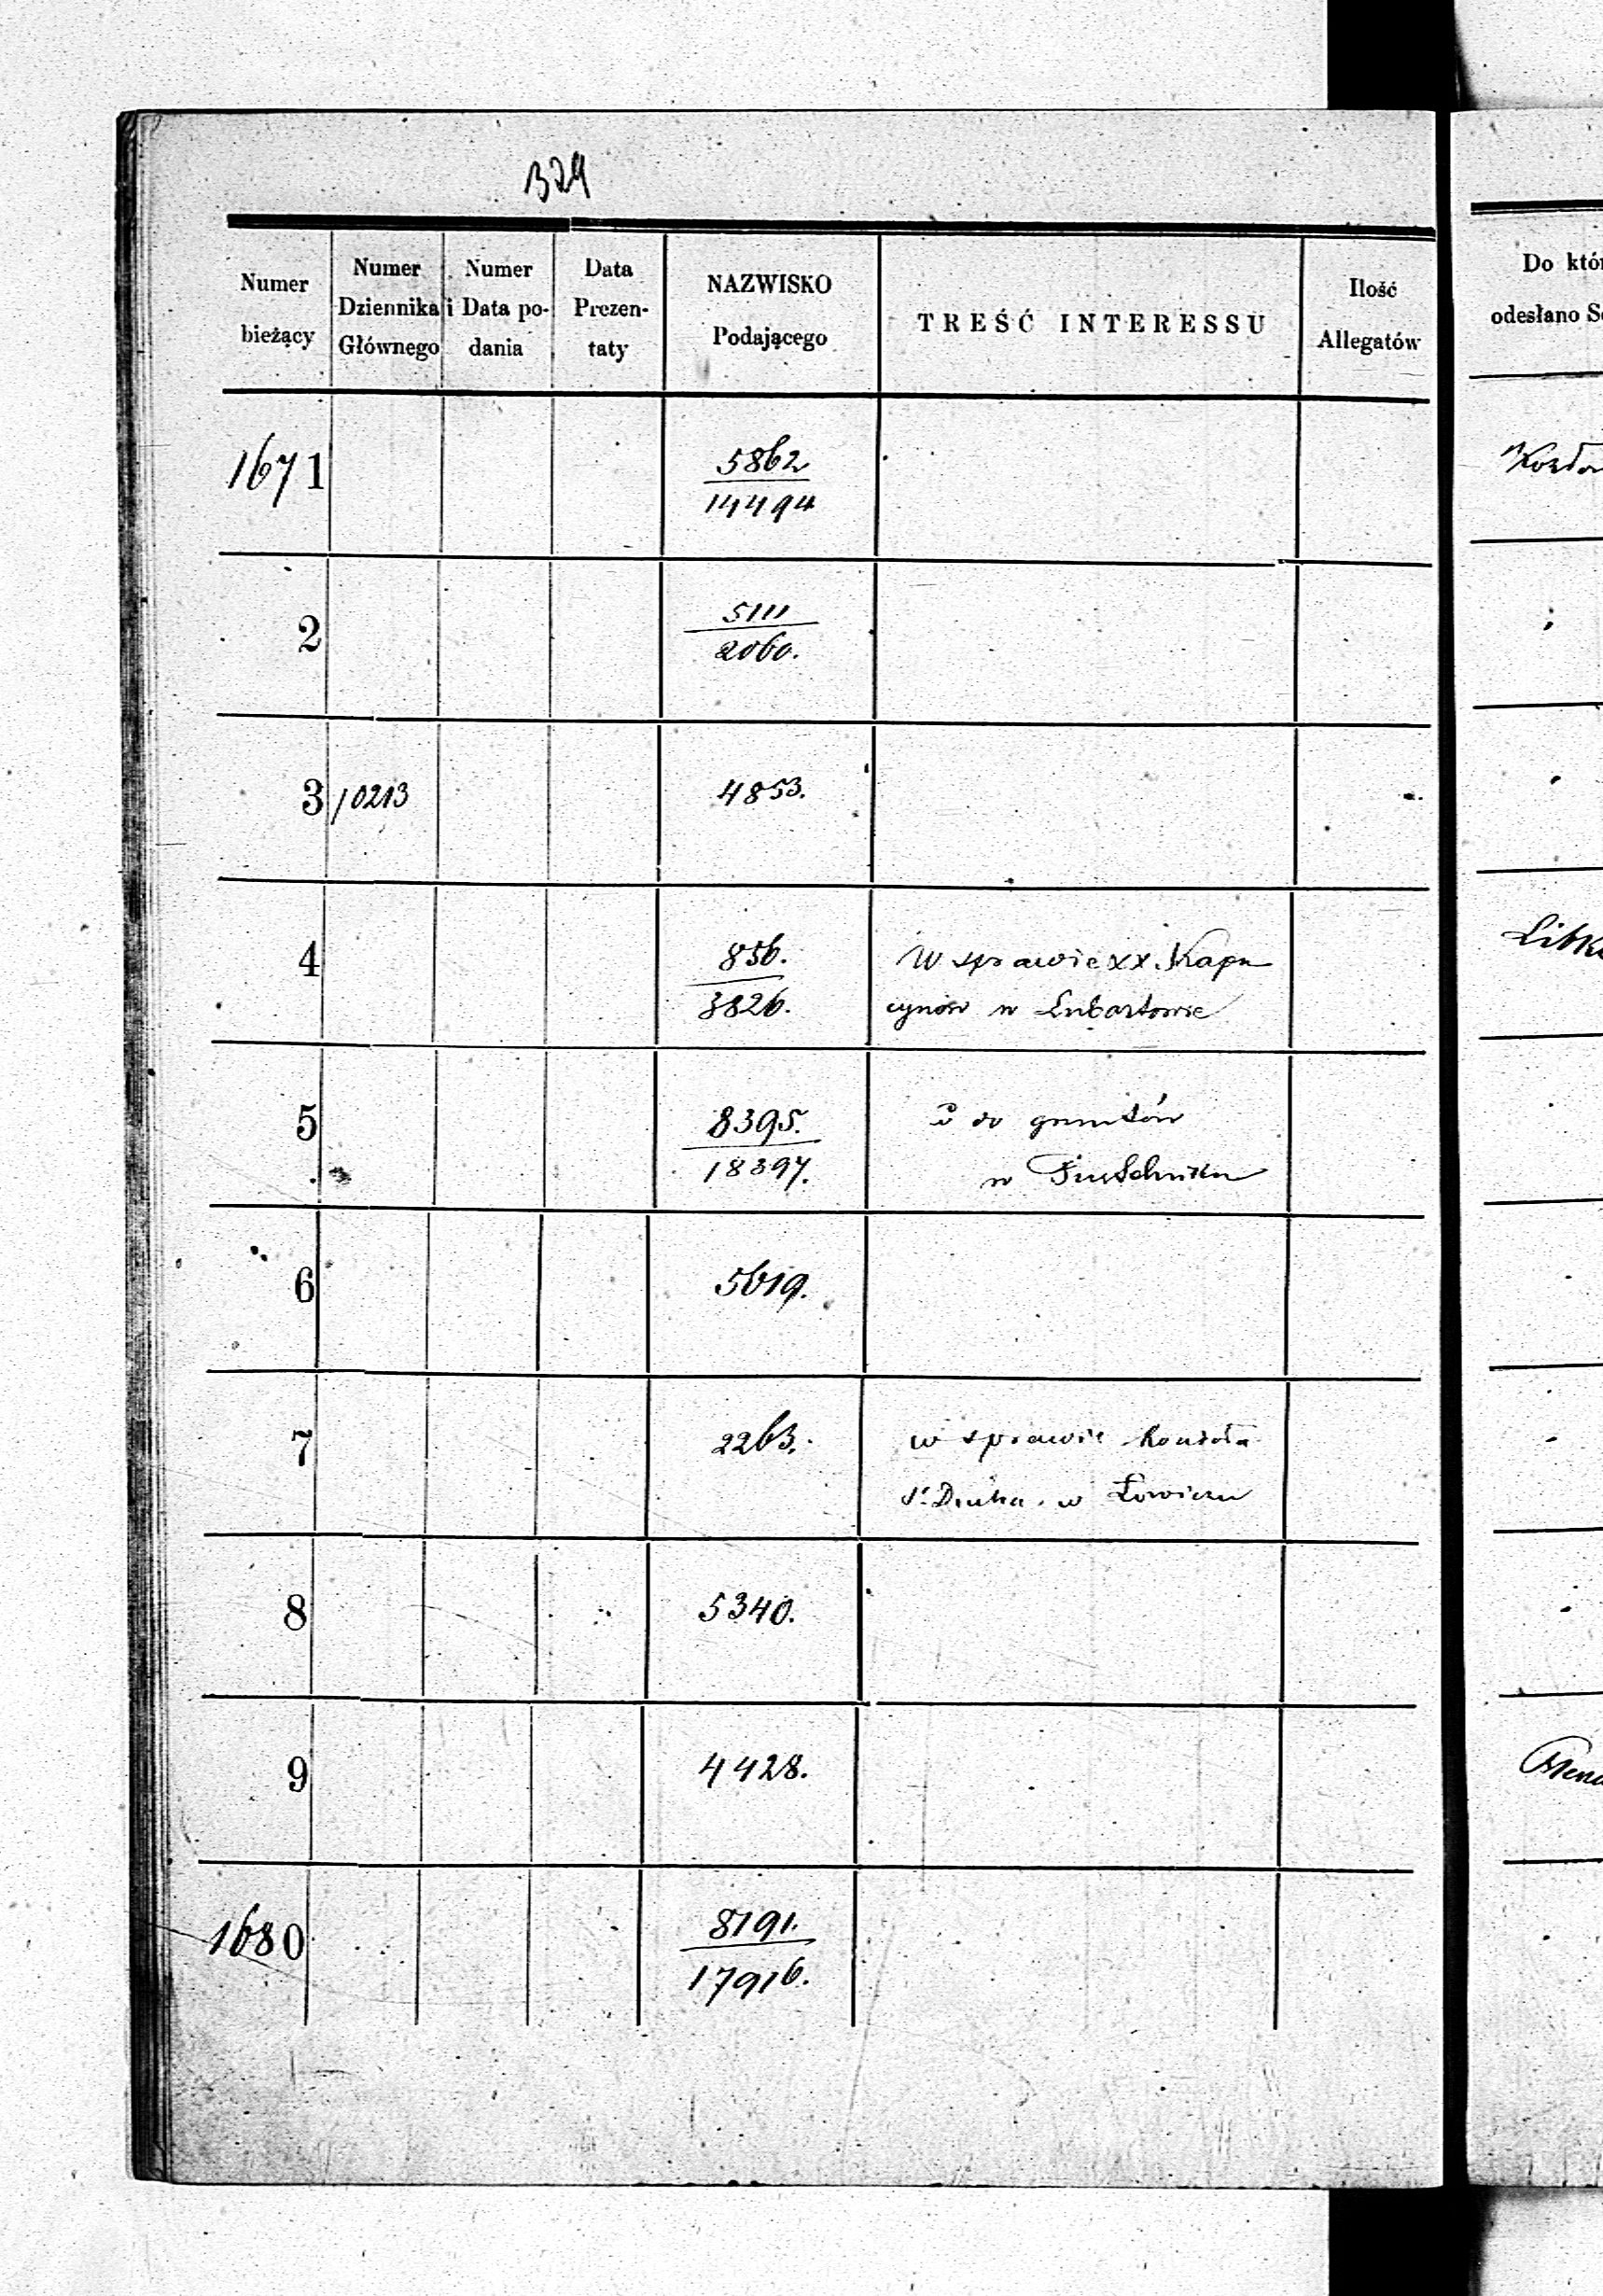 324
Numer bieżący
Numer Dziennika Głównego
Numer i Data podania
Data Prezentaty
NAZWISKO Podającego
TREŚĆ INTERESSU
Ilość Allegatów
Do któr
odesłano Se
1671
5862
14494
2
5111
2060.
3 10213 4853.
4
856.
3826.
W sprawie XX. Kapu
cynów w Lubartowie
Libk
5
8395.
18397.
do gruntów
w
6 5619.
7 2263.
w sprawie kościoła
Sº Ducha w Łowiczu
8 5340.
9 4428.
1680
8191.
17916.